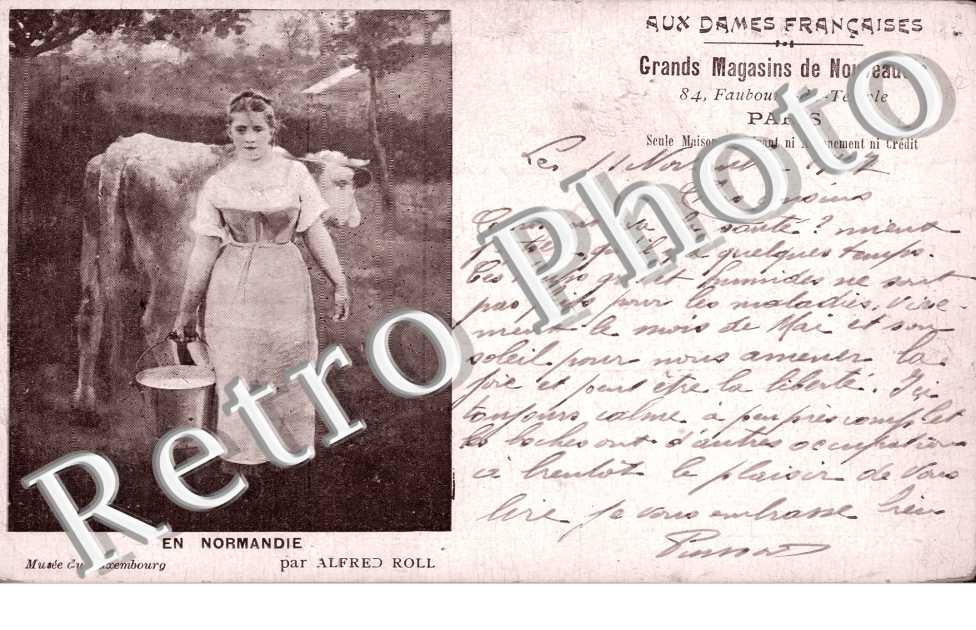 AUX DAMES FRANÇAISES
Grands Magasins de Nouveautés
84, Faubourg du Temple
PARIS
Seule Maison ni Abonnement ni Crédit
Les 11
Cousins
la santé? mieux
quelques temps.
Les humides ne sont
pas pour les maladies, vive-
ment le mois de Mai et son
soleil pour nous amener la
joie et peut être la liberté. Ici
toujours calme à peu près complet
les boches ont d'autres occupations
à bientôt le plaisir de vous
lire je vous embrasse bien
EN NORMANDIE
Musée du Luxembourg par ALFRED ROLL
Retro Photo